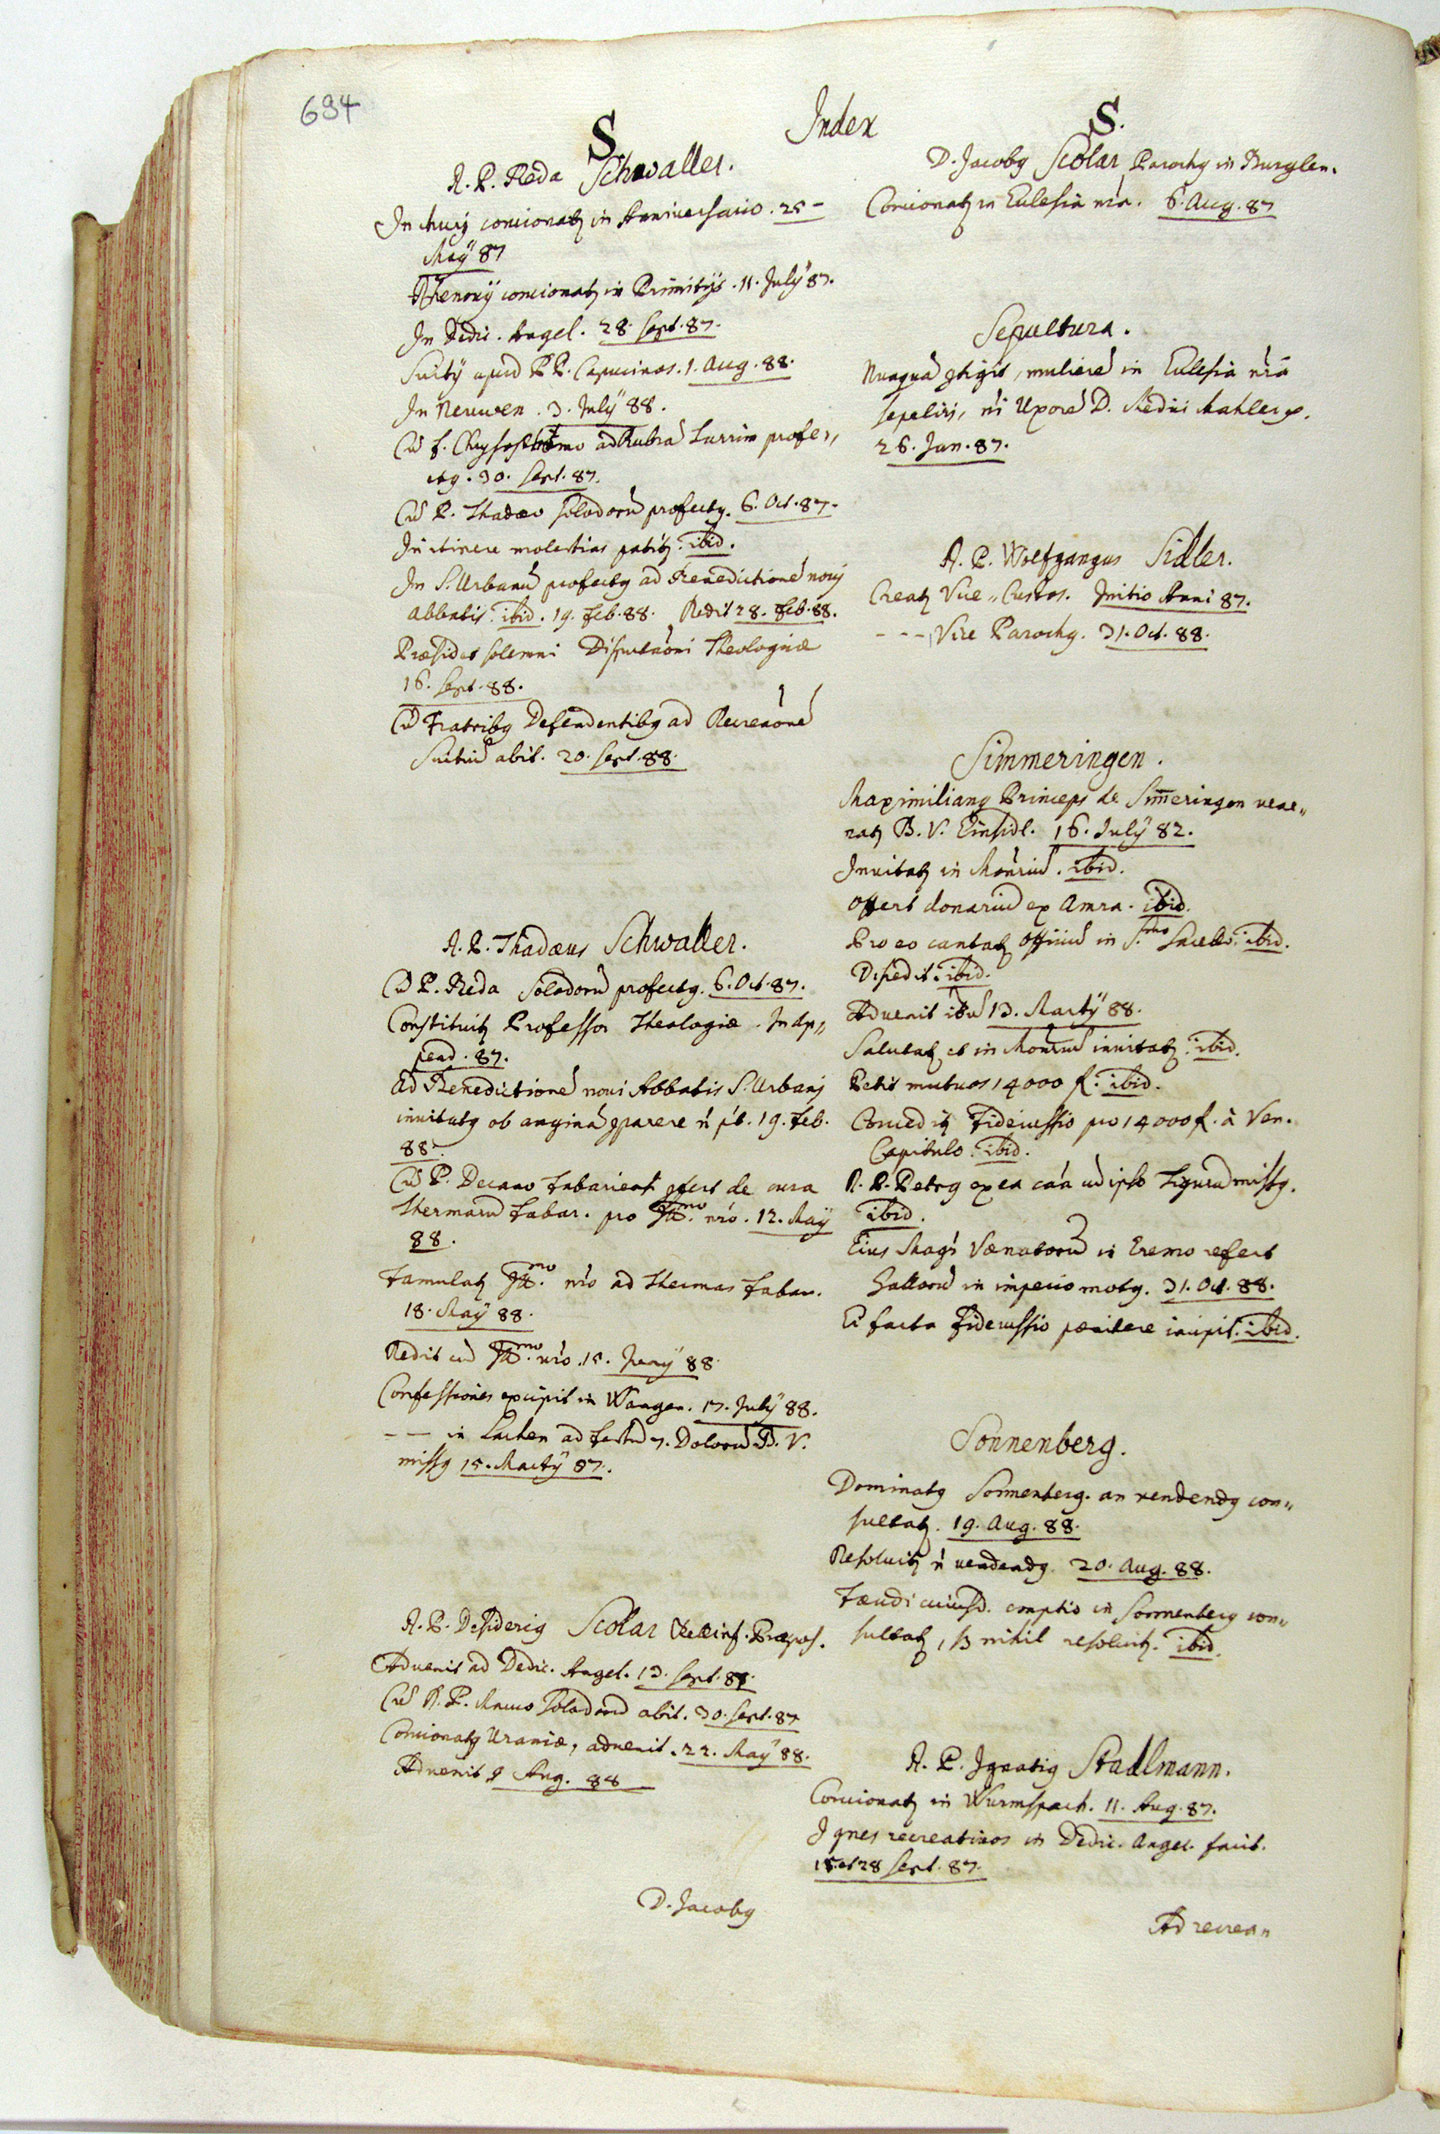 694
Index
S
A. P. Beda Schwaller.
In concionatq in Anniversario. 25
Maÿ 87
concionatq in Primitÿs. 11. Julÿ 87.
In Dedic. Angel. 28. Sept. 87.
apud P P. Capucinos. 1. Aug. 88.
In 3. Julÿ 88.
Cū f. ad Rubrā Turrim profe„
ctq. 30. Sept. 87.
Cū P. Thadæo Solodorū profectq. 6. Oct. 87.
In itinere molestias patitq. ibid.
In S. Urbanū profectq ad Benedictionē novi
Abbatis. ibid. 19. Feb. 88. Redit 28. Feb. 88.
Præsidet solemni Disputaōni Theologicæ
16. Sept. 88.
Cū Fratribq Defendentibq ad Recreaōnē
abit. 20. Sept. 88.
A. P. Thadæus Schwaller.
Cū P. Beda Solodorū profectq. 6. Oct. 87.
Constituitq Professor Theologiæ. In Ap„
pend. 87.
Ad Benedictionē novi Abbatis S. Urbani
invitatq ob anginā ꝯparere ñ pt. 19. Feb.
88.
Cū P. Decano Fabariensi ꝯfert de cura
Thermarū Fabar. pro mo nrō. 12. Maÿ
88.
Famulatq mo nrō ad Thermas Fabar.
18. Maÿ 88.
Redit cū mo nrō. 15. Junÿ 88.
Confessiones excipit in Wangen. 17. Julÿ 88.
– – in Lachen ad festū 7. Dolorū B. V.
missq 15. Martÿ 87.
A. P. Desideriq Scolar Bellinz. Præpos.
Advenit ad Dedic. Angel. 13. Sept. 87.
Cū A. P. Solodorū abit. 30. Sept. 87
Concionatq Uraniæ, advenit. 22. Maÿ 88.
Advenit 9 Aug. 88
D. Jacobq
S.
D. Jacobq Scolar Parochq in Burglen.
Concionatq in Ecclesiā nrā. 6. Aug. 87
Sepultura.
Nunquā ꝯtigit, mulierē in Ecclesiā nrā
sepeliri, ni Uxorē D. Medici Mahler
26. Jan. 87.
A. P. Wolfgangus Sidler.
Creatq Vice„ Custos. Initio Anni 87.
– – – Vice Parochq. 31. Oct. 88.
Simmeringen.
Maximilianq Princeps de Sim̄eringen vene„
ratq B. V. Einsidl. 16. Julÿ 82.
Invitatq in Mōnriū. ibid.
Offert donariū ex Amra. ibid.
Pro eo cantatq Officiū in S.mo Sacello. ibid.
Discedit. ibid.
Advenit itū 13. Martÿ 88.
Salutatq et in Mōnriū invitatq. ibid.
Petit mutuos 14000 f. ibid.
Conceditq Fidejussio pro 14000 f. à Ven.
Capitulo. ibid.
A. P. Petrq ex ea cāa ad ipsū Tigurū missq.
ibid.
Eius Magr Venatorū in Eremo refert
Gallorū in imperio motq. 31. Oct. 88.
Ei facta Fidejussio pœnitere incipit. ibid.
Sonnenberg.
Dominatq Sonnenberg. an vendendq con„
sultatq. 19. Aug. 88.
Resolvitq ñ vendendq. 20. Aug. 88.
Feudi cuiusd. emptio in Sonnenberg con„
sultatq, sꝫ nihil resolvitq. ibid.
A. P. Ignatiq Stadlmann.
Concionatq in Wurmspach. 11. Aug. 87.
Ignes recreativos in Dedic. Angel. facit.
15. et 28 Sept. 87.
Ad recrea„